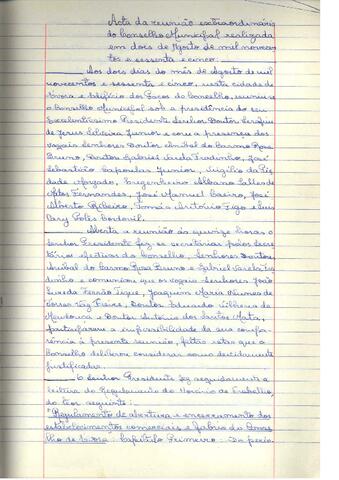 Acta da reunião extraordinária
do Conselho Municipal realizada
em dois de Agosto de mil novecen
tos e sessenta e cinco.
Aos dois dias do mês de Agosto de mil
novecentos e sessenta e cinco, nesta cidade de
Évora e edifício dos Paços do Concelho, reuniu-se
o Conselho Municipal sob a presidência do seu
Excelentíssimo Presidente Senhor Doutor Serafim
de Jesus Silveira Junior e com a presença dos
vogais Senhores Doutor Anibal do Carmo Rosa
Bruno, Doutor Gabriel Varela Fradinho, José
Sebastião Junior, Virgílio da Pie
dade Morgado, Engenheiro Albano
Matos Fernandes, José Manuel Caeiro, José
Alberto Ribeiro, Tomás António Figo e Luis
Cordovil.
Aberta a reunião às quinze horas o
Senhor Presidente fez-se secretariar pelos Secre
tários efectivos do Conselho, Senhores Doutor
Anibal do Carmo Rosa Bruno e Gabriel Varela Fra
dinho e comunicou que os vogais Senhores João
Fernão Joaquim Maria Nunes de
Torres Vaz Freire, Doutor Eduardo Vilhena de
Mendonça e Doutor António dos Santos Mata,
participaram a impossibilidade da sua compa
rência à presente reunião, faltas estas que o
Conselho deliberou considerar como devidamente
justificadas.
O Senhor Presidente fez seguidamente a
leitura do Regulamento do Horário de Trabalho,
do teor seguinte:
"Regulamento de abertura e encerramento dos
estabelecimentos comerciais e fabris do Conce
lho de Évora: Capítulo Primeiro - Do perío-